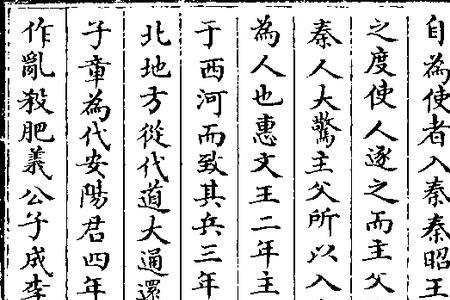 自為使者入秦秦昭王
之度使人逐之而主父
秦人大驚主父所以入
為人也惠文王二年主
于西河而致其兵三年
北地方從代道大通還
子章為代安陽君四年
作亂殺肥義公子成李